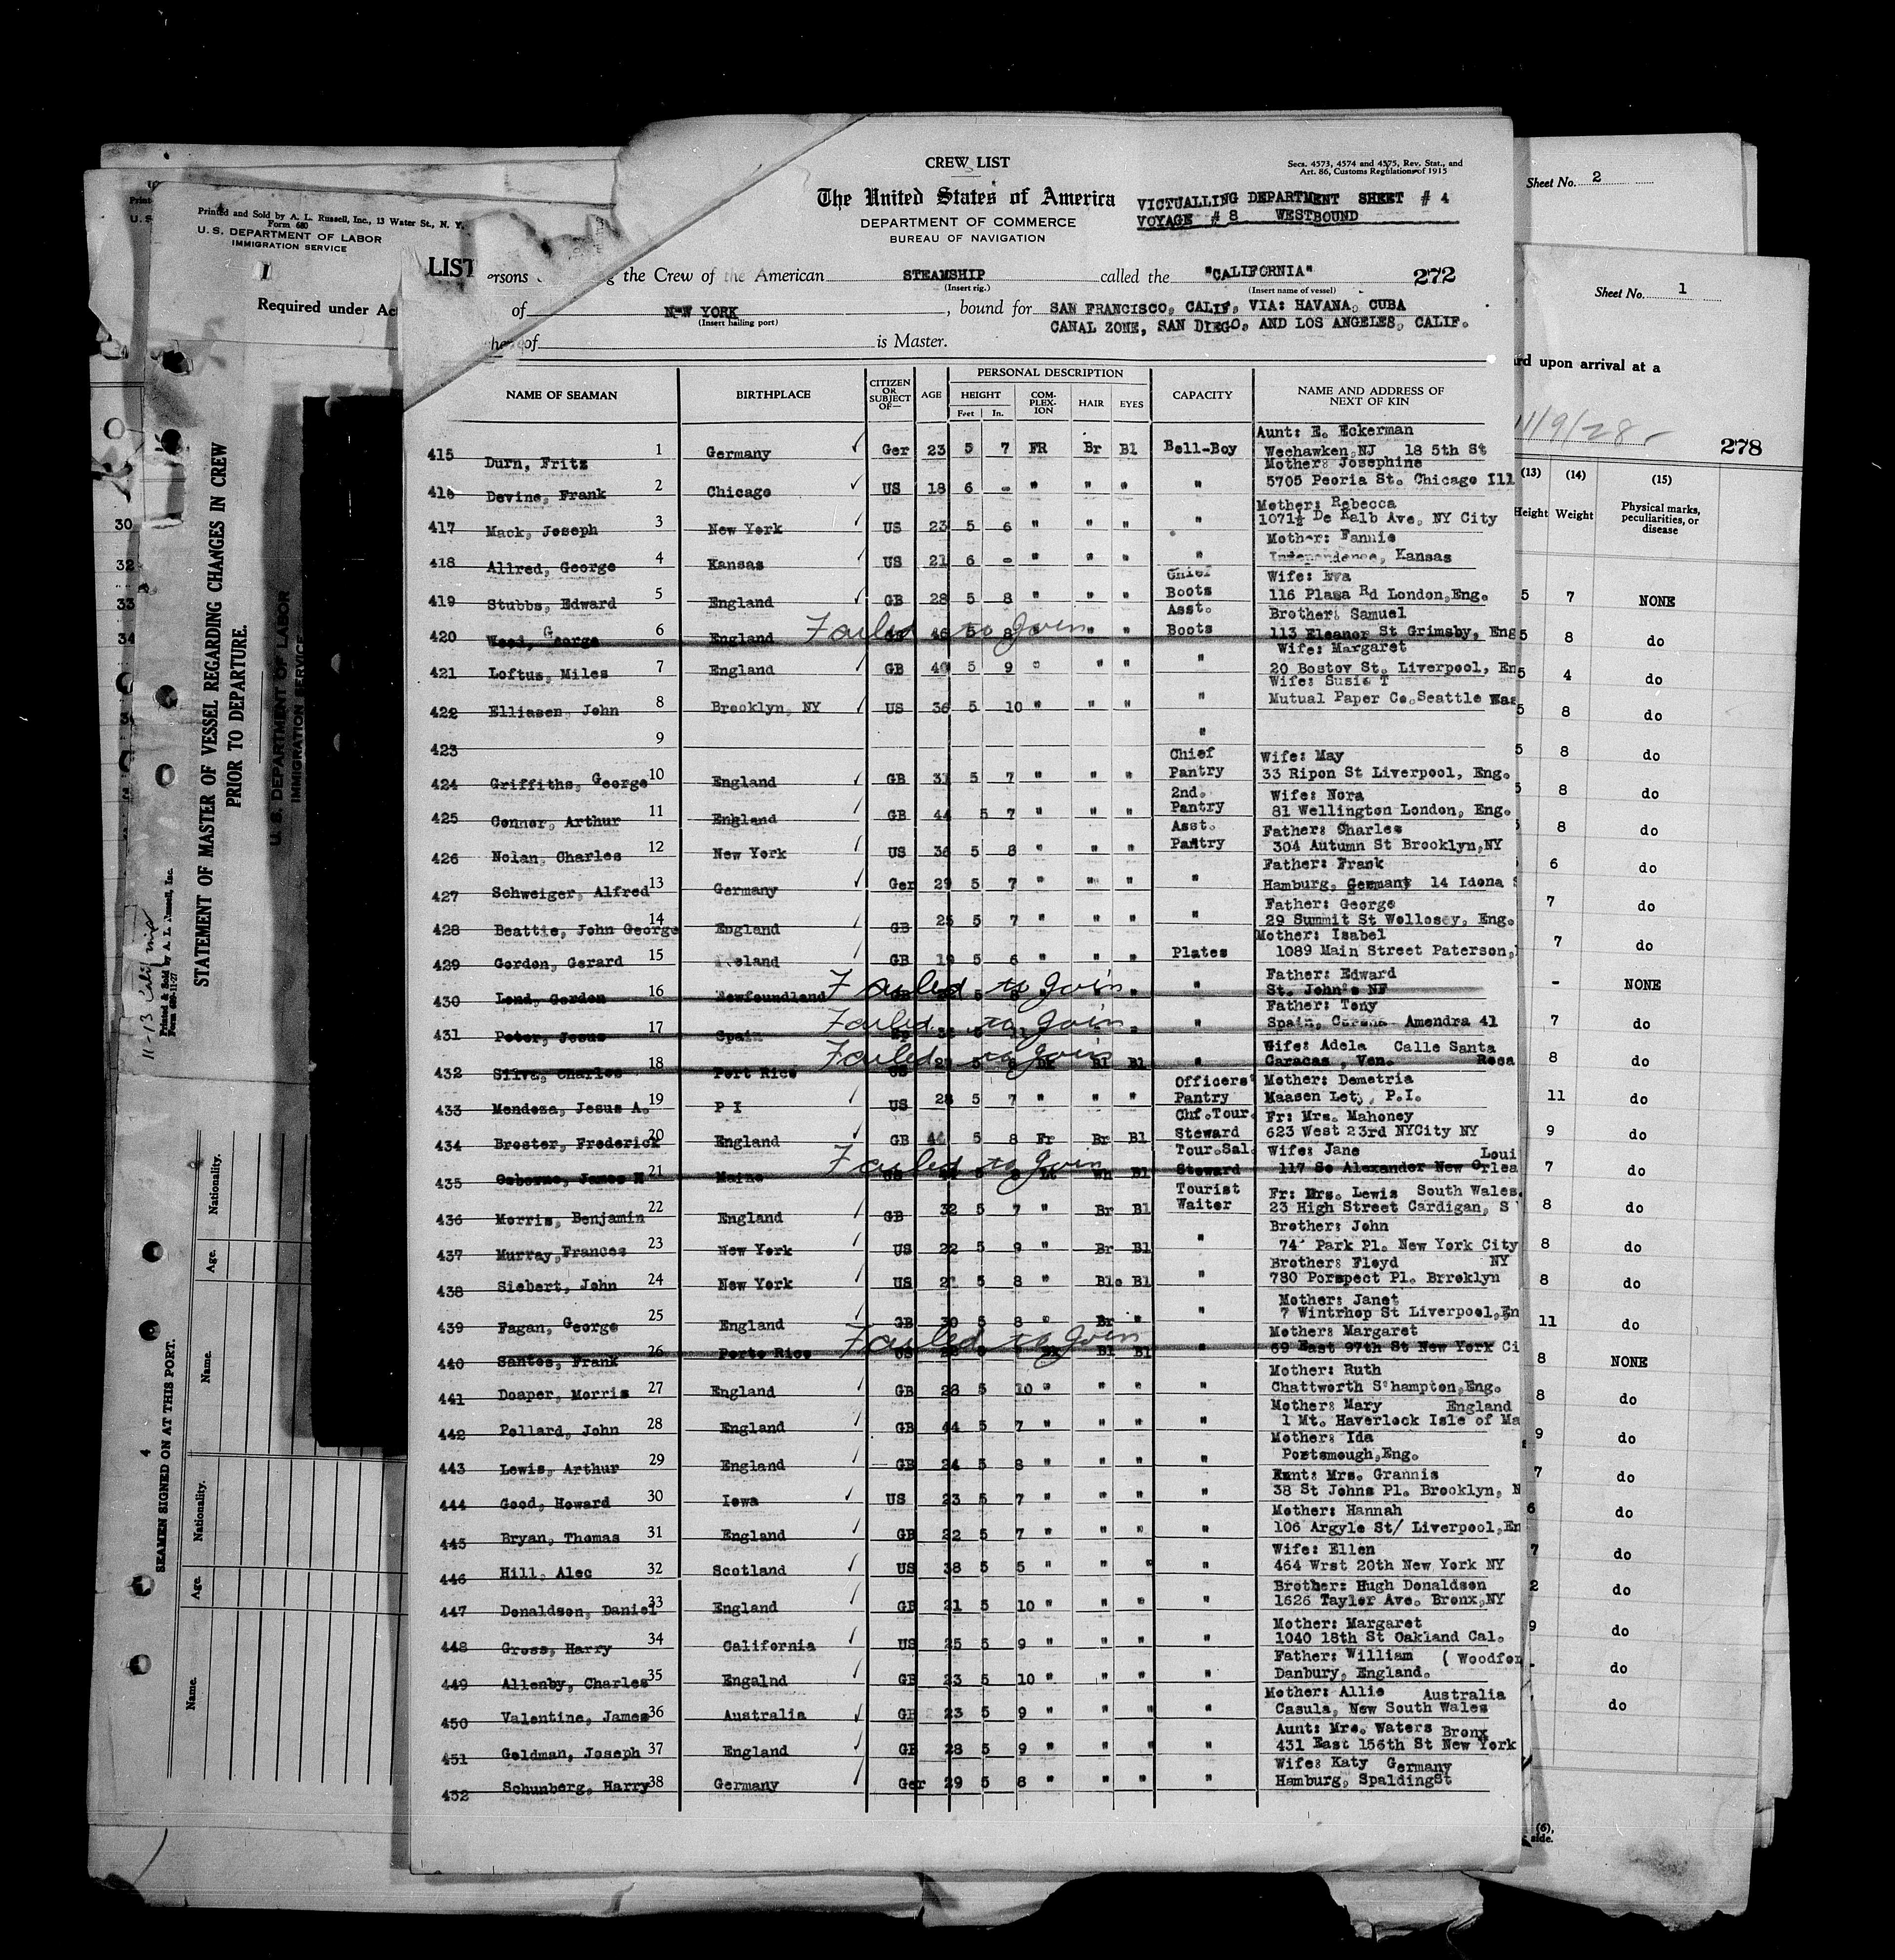 CREW LIST
Secs. 4573, 4574 and 4575, Rev. Stat., and
Art. 86, Customs Regulations of 1915
The United States of America
DEPARTMENT OF COMMERCE
BUREAU OF NAVIGATION
VICTUALLING DEPARTMENT SHEET # 4
VOYAGE # 8 WESTBOUND
LIST ersons the Crew of the American STEAMSHIP called the "CALIFORNIA" 272
(Insert rig.) (Insert name of vessel)
of NEW YORK, bound for SAN FRANCISCO, CALIF, VIA: HAVANA, CUBA
(Insert hailing port) CANAL ZONE, SAN DIEGO, AND LOS ANGELES, CALIF.
of is Master.
NAME OF SEAMAN BIRTHPLACE CITIZEN OR SUBJECT OF— AGE PERSONAL DESCRIPTION CAPACITY NAME AND ADDRESS OF NEXT OF KIN
HEIGHT Feet In. COM-PLEX-ION HAIR EYES
415 Durn, Fritz 1 Germany Ger 23 5 7 FR Br Bl Bell-Boy Aunt: E. Eckerman
Weehawken,NJ 18 5th St
416 Devine, Frank 2 Chicago US 18 6 - " " " " Mother: Josephine
5705 Peoria St. Chicago Ill
417 Mack, Joseph 3 New York US 23 5 6 " " " " Mother: Rebecca
1071½ De Kalb Ave, NY City
418 Allred, George 4 Kansas US 21 6 - " " " " Mother: Fannie
Independence, Kansas
419 Stubbs, Edward 5 England GB 28 5 8 " " " Chief Boots Wife: Eva
116 Plaza Rd London,Eng.
420 Wood, George 6 England Failed to join " " Asst. Boots Brother: Samuel
113 Eleanor St Grimsby, Eng
421 Loftus, Miles 7 England GB 40 5 9 " " " " Wife: Margaret
20 Bostov St. Liverpool, En
422 Elliasen, John 8 Brooklyn, NY US 36 5 10 " " " " Wife: Susie T
Mutual Paper Co.Seattle Was
423 9 "
424 Griffiths, George 10 England GB 31 5 7 " " " Chief Pantry Wife: May
33 Ripon St Liverpool, Eng.
425 Connor, Arthur 11 England GB 44 5 7 " " " 2nd. Pantry Wife: Nora
81 Wellington London, Eng.
426 Nolan, Charles 12 New York US 36 5 8 " " " Asst. Pantry Father: Charles
304 Autumn St Brooklyn,NY
427 Schweiger, Alfred 13 Germany Ger 29 5 7 " " " " Father: Frank
Hamburg, Germant 14 Idona
428 Beattie, John George 14 England GB 25 5 7 " " " " Father: George
29 Summit St Wollosey, Eng.
429 Gordon, Gerard 15 GB 19 5 6 " " " Plates Mother: Isabel
1089 Main Street Paterson,
430 Lond, Gordon 16 Newfoundland Failed to join " " Father: Edward
St. John's NF
431 Peter, Jesus 17 Spain Failed to join " Father: Tony
Spain, Amendra 41
432 Silva, Charles 18 Port Rico Failed to join Bl Bl " Wife: Adela Calle Santa
Caracas, Ven. Rosa
433 Mendoza, Jesus A. 19 P I US 28 5 7 " " " Officers' Pantry Mother: Demetria
Maasen Let, P.I.
434 Brester, Frederick 20 England GB 5 8 Fr Br Bl Chf.Tour. Steward Fr: Mrs. Mahoney
623 West 23rd NYCity NY
435 Osborne, James M 21 Maine Failed to join Lt Wh Bl Tour.Sal. Steward Wife: Jane Loui
117 So Alexander New Orlea
436 Morris, Benjamin 22 England GB 32 5 7 " Br Bl Tourist Waiter Fr: Mrs. Lewis South Wales.
23 High Street Cardigan, S
437 Murray,Frances 23 New York US 22 5 9 " Br Bl " Brother: John
74 Park Pl. New York City
438 Siebert, John 24 New York US 5 8 " Blo Bl " Brother: Floyd NY
780 Porspect Pl. Brroklyn
439 Fagan, George 25 England GB 30 5 8 " Br " " Mother: Janet
7 Wintrhop St Liverpool,En
440 Santos, Frank 26 Porto Rico Failed to join Bl Bl " Mother: Margaret
69 East 97th St New York Ci
441 Doaper, Morris 27 England GB 28 5 10 " " " " Mother: Ruth
Chattworth S'hampton,Eng.
442 Pollard, John 28 England GB 44 5 7 " " " " Mother: Mary England
1 Mt. Haverlock Isle of Ma
443 Lewis, Arthur 29 England GB 24 5 8 " " " " Mother: Ida
Portsmough,Eng.
444 Good, Howard 30 Iowa US 23 5 7 " " " " Aunt: Mrs. Grannis
38 St Johns Pl. Brooklyn, N
445 Bryan, Thomas 31 England GB 22 5 7 " " " " Mother: Hannah
106 Argyle St/ Liverpool,En
446 Hill, Alec 32 Scotland US 38 5 5 " " " " Wife: Ellen
464 Wrst 20th New York NY
447 Donaldson, Daniel 33 England GB 21 5 10 " " " " Brother: Hugh Donaldson
1626 Taylor Ave. Bronx,NY
448 Gross, Harry 34 California US 25 5 9 " " " " Mother: Margaret
1040 18th St Oakland Cal.
449 Allenby, Charles 35 Engalnd GB 23 5 10 " " " " Father: William ( Woodfor
Danbury, England.
450 Valentine, James 36 Australia GB 23 5 9 " " " " Mother: Allie Australia
Casula, New South Wales
451 Goldman, Joseph 37 England GB 28 5 9 " " " " Aunt: Mrs. Waters Bronx
431 East 156th St New York
452 Schunberg, Harry 38 Germany Ger 29 5 8 " " " " Wife: Katy Germany
Hamburg, SpaldingSt
Printed and Sold by A. L. Russell, Inc., 13 Water St., N. Y.
Form 680
U. S. DEPARTMENT OF LABOR
IMMIGRATION SERVICE
Required under Ac
STATEMENT OF MASTER OF VESSEL REGARDING CHANGES IN CREW
PRIOR TO DEPARTURE.
U. S. DEPARTMENT OF LABOR
IMMIGRATION SERVICE
30
32
33
34
Printed & Sold by A. L. Russell, Inc.
SEAMEN SIGNED ON AT THIS PORT.
4
Nationality.
Age.
Name.
Nationality.
Age.
Name.
Sheet No. 2
Sheet No. 1
rd upon arrival at a
11/9/28
278
(13) (14) (15)
Height Weight Physical marks, peculiarities, or disease
5 7 NONE
5 8 do
5 4 do
5 8 do
5 8 do
5 8 do
8 do
6 do
7 do
7 do
- NONE
7 do
8 do
11 do
9 do
7 do
8 do
8 do
8 do
11 do
8 NONE
8 do
9 do
7 do
6 do
7 do
2 do
9 do
- do
do
(6),
side.